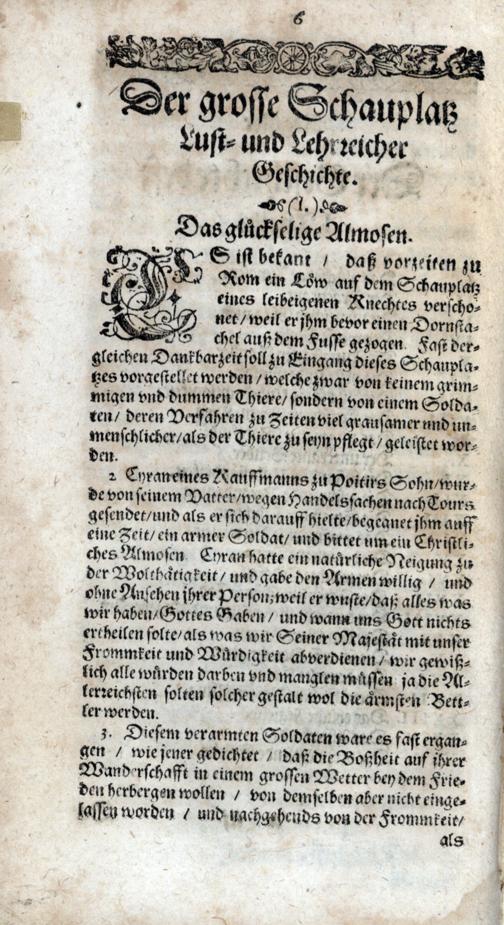 6
Der grosse Schauplatz
Lust- und Lehrreicher
Geschichte.
(I.)
Das glückselige Almosen.
ES ist bekant / daß vorzeiten zu
Rom ein Löw auf dem Schauplatz
eines leibeigenen Knechtes verscho-
net / weil er jhm bevor einen Dornsta-
chel auß dem Fusse gezogen. Fast der-
gleichen Danckbarzeit soll zu Eingang dieses Schaupla-
tzes vorgestellet werden / welche zwar von keinem grim-
migen vnd dummen Thiere / sondern von einem Solda-
ten / deren Verfahren zu Zeiten viel grausamer und un-
menschlicher / als der Thiere zu seyn pflegt / geleistet wor-
den.
2 Cyran eines Kauffmanns zu Poitirs Sohn / wur-
de von seinem Vatter / wegen Handelssachen nach Tours
gesendet / und als er sich darauff hielte / begegnet jhm auff
eine Zeit / ein armer Soldat / und bittet um ein Christli-
ches Almosen. Cyran hatte ein natürliche Neigung zu
der Wolthätigkeit / und gabe den Armen willig / und
ohne Ansehen jhrer Person; weil er wuste / daß alles was
wir haben / Gottes Gaben / und wann uns Gott nichts
ertheilen solte / als was wir Seiner Majestät mit unser
Frommkeit und Würdigkeit abverdienen / wir gewiß-
lich alle würden darben vnd manglen müssen ja die Al-
lerreichsten solten solcher gestalt wol die ärmsten Bett-
ler werden.
3. Diesem verarmten Soldaten ware es fast ergan-
gen / wie jener gedichtet / daß die Boßheit auf jhrer
Wanderschafft in einem grossen Wetter bey dem Frie-
den herbergen wollen / von demselben aber nicht einge-
lassen worden / und nachgehends von der Frommkeit /
als